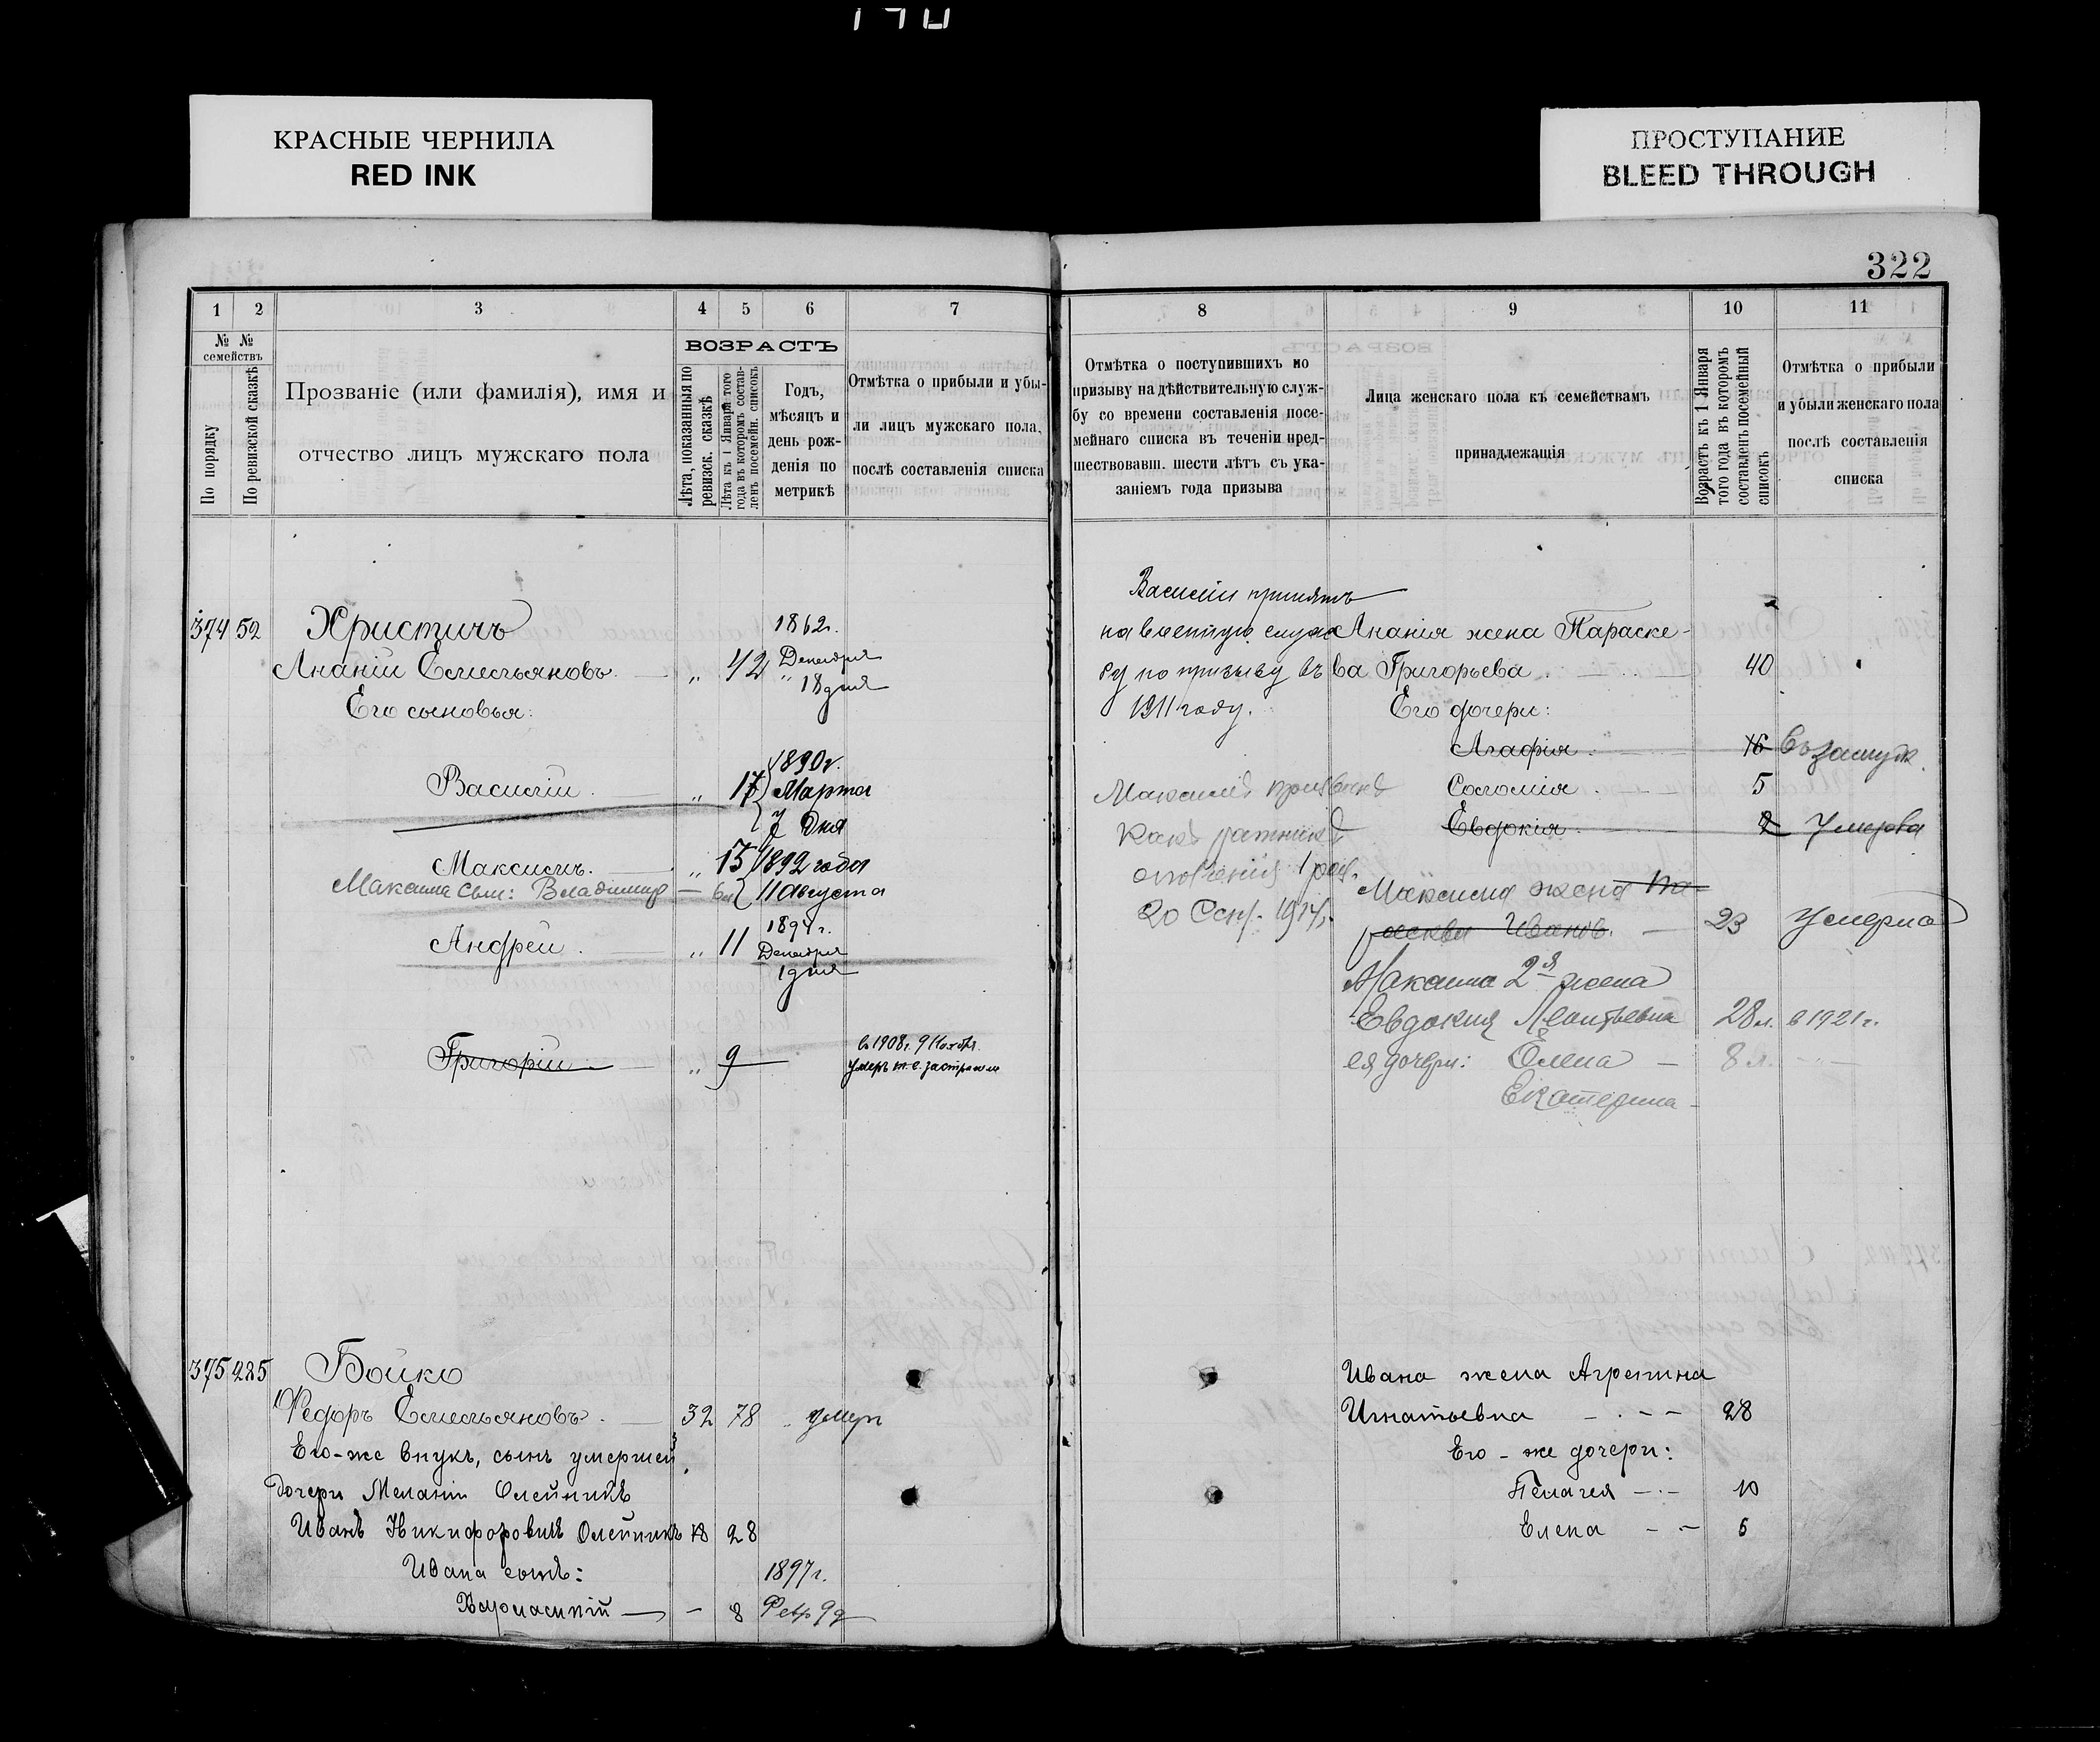 КРАСНЫЕ ЧЕРНИЛА
RED INK
ПРОСТУПАНИЕ
BLEED THROUGH
322
1 2 3 4 5 6 7
№ № семействъ
По порядку
По ревизской сказкѣ
Прозваніе (или фамилія), имя и
отчество лицъ мужскаго пола
ВОЗРАСТЪ
Лѣта, показанныя по
ревизск. сказкѣ
Лѣта къ 1 Января того
года въ которомъ состав-
ленъ посемейн. списокъ
Годъ,
мѣсяцъ и
день рож-
денія по
метрикѣ
Отмѣтка о прибыли и убы-
ли лицъ мужскаго пола,
послѣ составленія списка
374 52 Христичъ 1862г.
Ананій Емельяновъ „ 42 Декабря
„ 18 дня
Его сыновья:
1890г.
Василій „ 17 Марта
7 Дня
Максимъ „ 15 1892 года
Максима сын: Владимир — 6л 11 Августа
1894 г.
Андрей „ 11 Декабря
1 дня
в 1908 г. 9 Ноября
Григорій „ 9 умеръ
375 225 Бойко
Федоръ Емельяновъ 32 78 умер
Его-же внукъ, сынъ умершей
дочери Меланіи Олейникъ
Иванъ Никифоровичъ Олейникъ 18 28
Ивана сынъ: 1897 г.
— 8 Февр 9 д
8 9 10 11
Отмѣтка о поступившихъ по
призыву на дѣйствительную служ-
бу со времени составленія посе-
мейнаго списка въ теченіи пред-
шествовавш. шести лѣтъ съ ука-
заніемъ года призыва
Лица женскаго пола къ семействамъ
принадлежащія
Возрастъ къ 1 Января
того года въ которомъ
составленъ посемейный
списокъ
Отмѣтка о прибыли
и убыли женскаго пола
послѣ составленія
списка
Василій принятъ
на военную служ
бу по призыву въ
1911 году.
Максимъ призванъ
какъ ратникъ
ополченія 1 раз.
20 Сент. 1914г.
Ананія жена Параске-
ва Григорьева 40
Его дочери:
Агафія 16 въ замуж.
Соломія 5
Евдокія 2 Умерла
Максима жена Па-
раскева Иванов. — 23 Умерла
Максима 2я жена
Евдокия Леонтьевна 28л. в 1921 г.
ея дочери: Олена — 8 л. — „ —
Екатерина -
Ивана жена Агрепина
Игнатьевна 28
Его - же дочери:
Пелагея 10
Елена 5